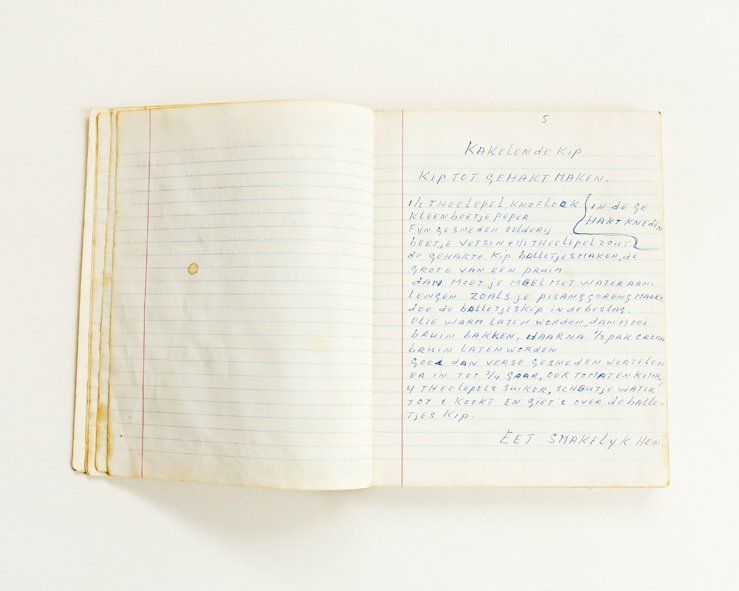 5
KAKELENDE KIP
KIP TOT GEHAKT MAKEN.
1/2 THEELEPEL KNOFLOOK
IN DE GE
KLEEN BEETJE PEPER
HAKT KNEDEN
FYN GESNEDEN SELDERIJ
BEETJE VETSIN + 1/2 THEELEPEL ZOUT
DE GEHAKTE KIP BALLETJES MAKEN, DE
GROTE VAN EEN PRUIM
DAN MOET JE MEEL MET WATER AAN-
LENGEN ZOALS JE PISANG GORENG MAAKT
DOE DE BALLETJES KIP IN DE BESLAG.
OLIE WARM LATEN WORDEN, DAN MOOI
BRUIN BAKKEN, DAARNA 1/2 PAK CROMA
BRUIN LATEN WORDEN
GOOI DAN VERSE GESNEDEN WORTELEN
ER IN TOT 3/4 GAAR, OOK TOMATEN
4 THEELEPELS SUIKER, SCHEUTJE WATER
TOT 't KOOKT EN GIET 't OVER DE BALLE-
TJES KIP.
EET SMAKELYK HEM